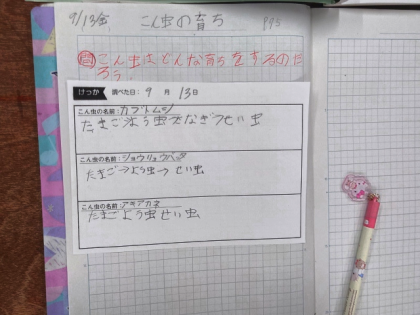 9/13㊎ こん虫の育ち P95
問 こん虫はどんな育ちをするのだ
ろう。
けっか 調べた日: 9 月 13日
こん虫の名前: カブトムシ
たまご→よう虫→さなぎ→せい虫
こん虫の名前: ショウリョウバッタ
たまご→よう虫→せい虫
こん虫の名前: アキアカネ
たまごよう虫せい虫